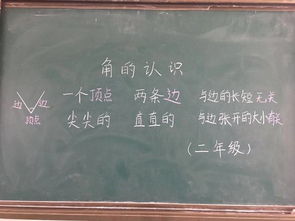 角的认识
一个顶点 两条边 与边的长短无关
边 边
顶点
尖尖的 直直的 与边张开的大小有关
(二年级)